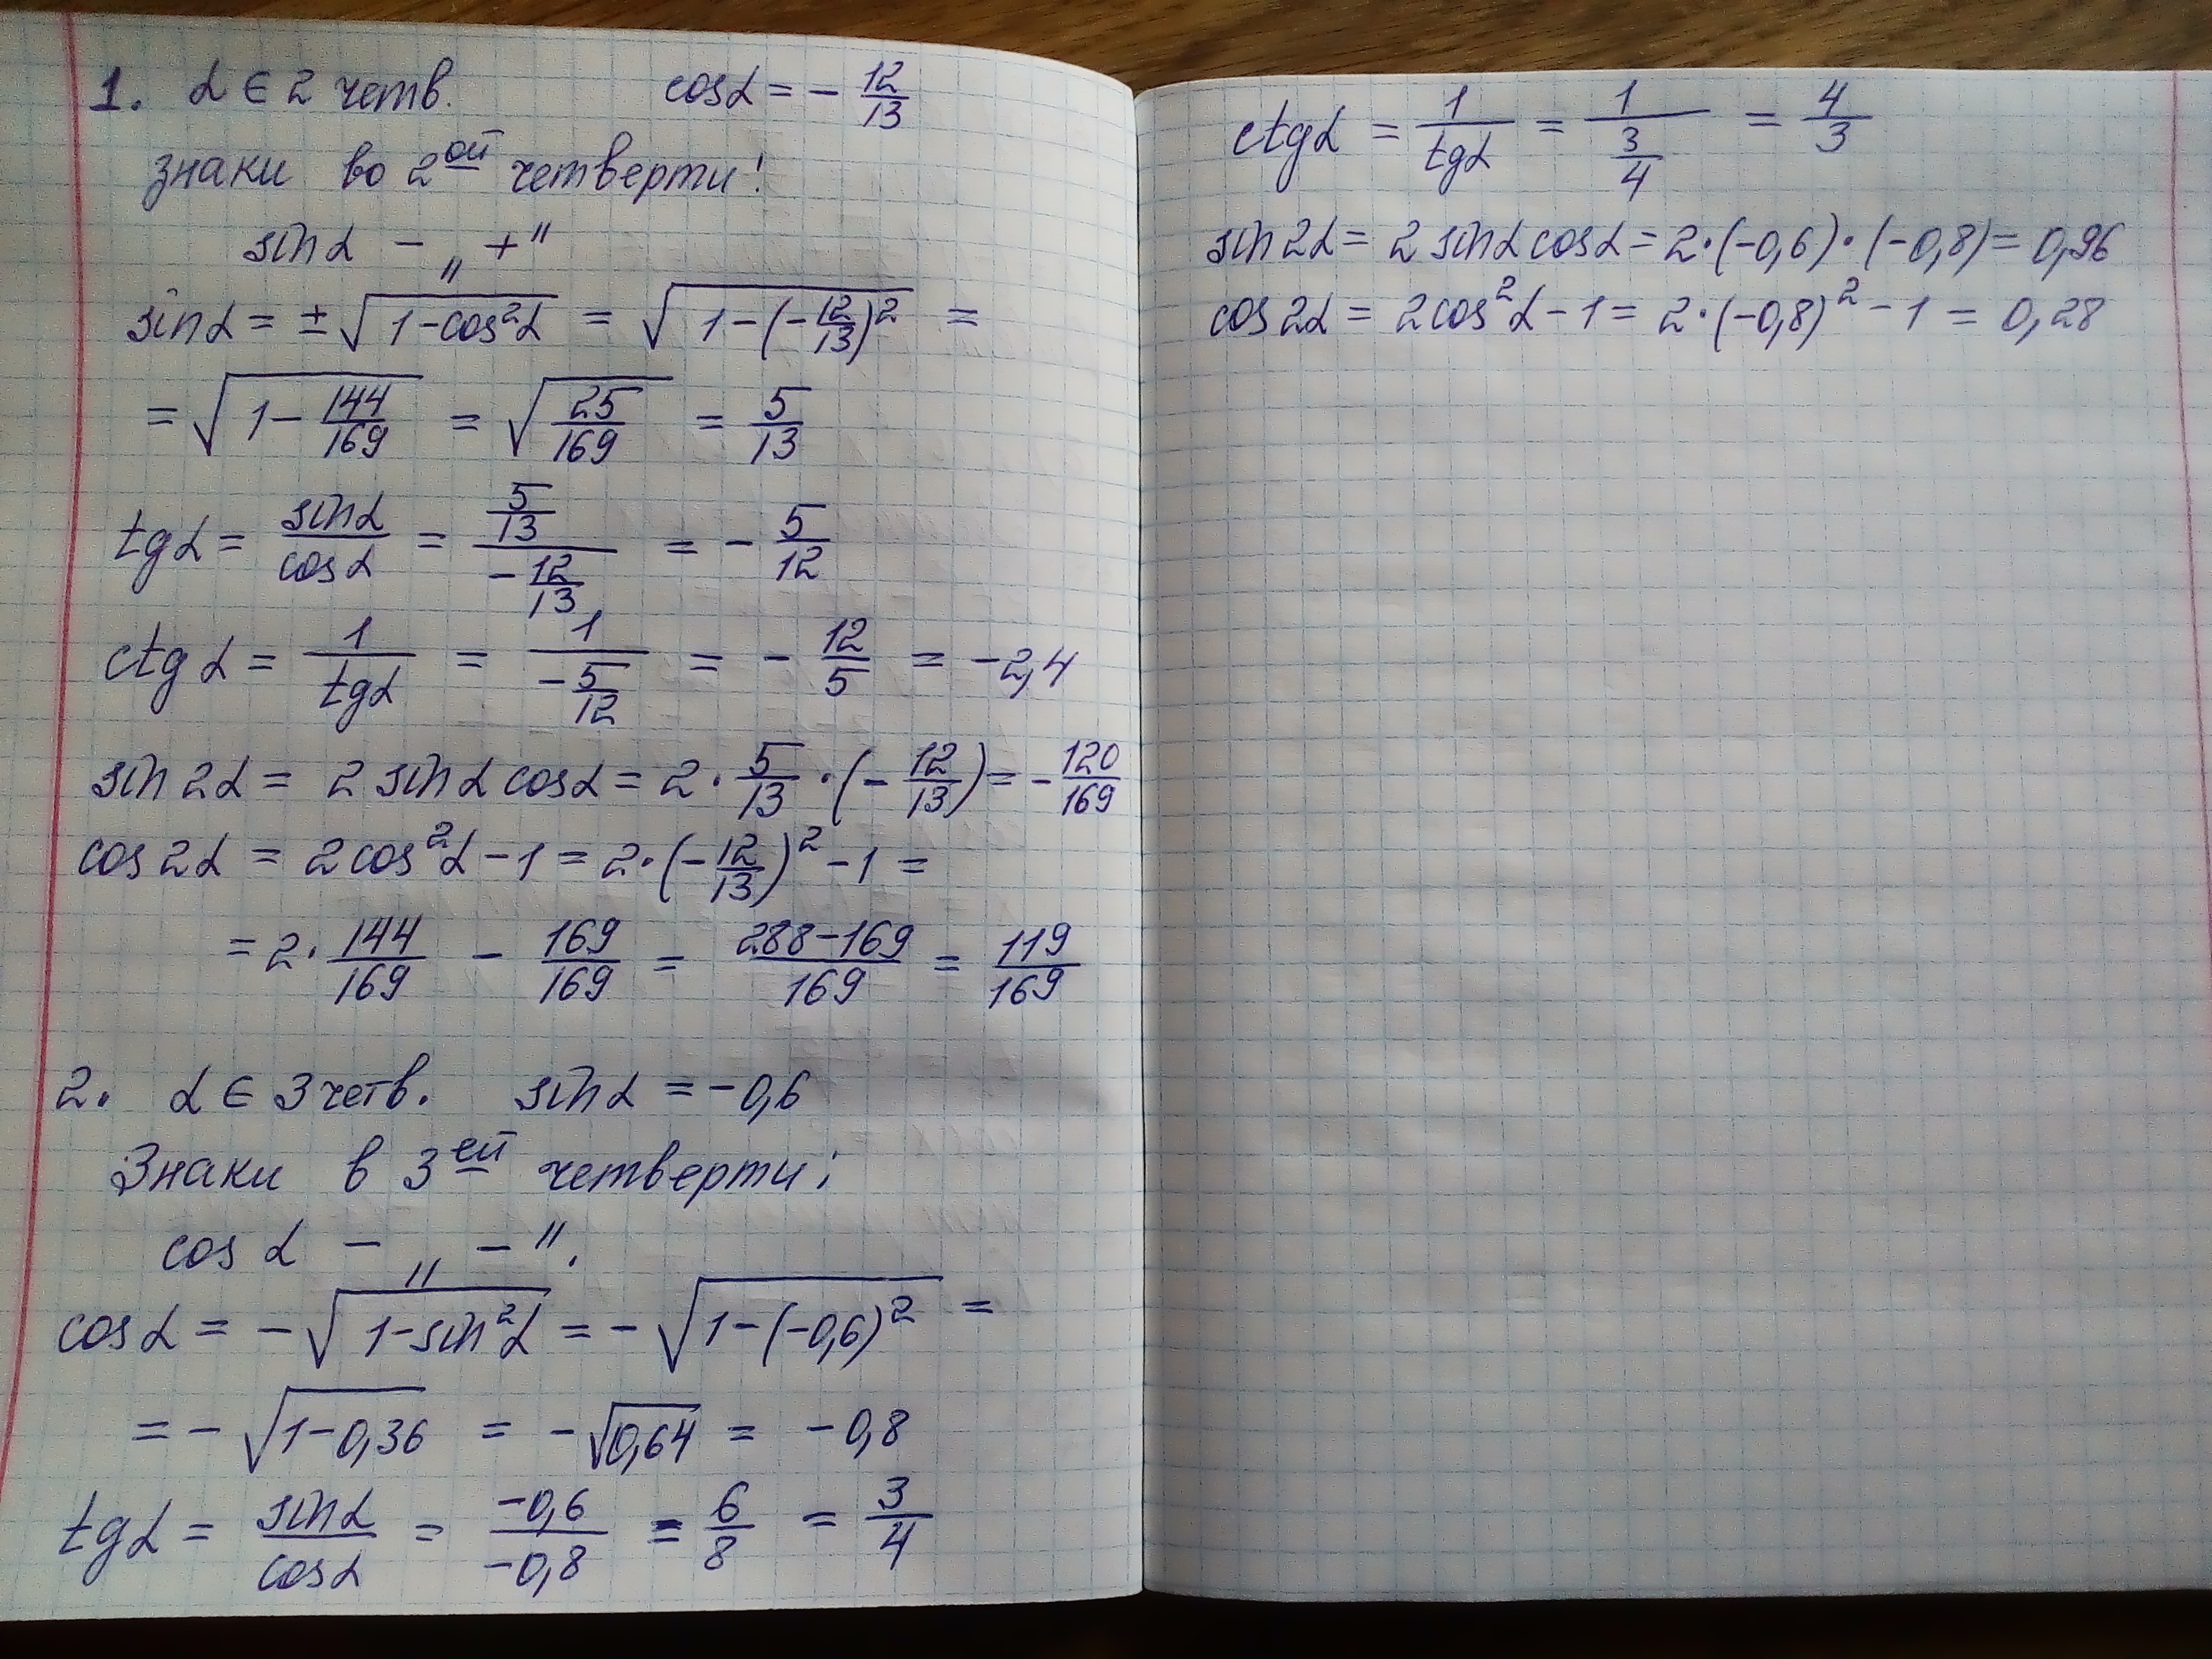 1. α ∈ 2 четв. cosα = - 12/13
знаки во 2ой четверти!
sinα - „ + "
sinα = ±√(1-cos²α) = √(1-(-12/13)²) =
= √(1 - 144/169) = √(25/169) = 5/13
tgα = sinα/cosα = (5/13)/(-12/13) = - 5/12
ctgα = 1/tgα = 1/(-5/12) = - 12/5 = -2,4
sin2α = 2 sinα cosα = 2 · 5/13 · (- 12/13) = - 120/169
cos2α = 2cos²α - 1 = 2·(-12/13)² - 1 =
= 2· 144/169 - 169/169 = (288-169)/169 = 119/169
2. α ∈ 3 четв. sinα = -0,6
Знаки в 3ей четверти:
cosα - „ - ".
cosα = -√(1-sin²α) = -√(1-(-0,6)²) =
= -√(1-0,36) = -√(0,64) = -0,8
tgα = sinα/cosα = -0,6/-0,8 = 6/8 = 3/4
ctgα = 1/tgα = 1/(3/4) = 4/3
sin2α = 2 sinα cosα = 2·(-0,6)·(-0,8) = 0,96
cos2α = 2cos²α - 1 = 2·(-0,8)² - 1 = 0,28